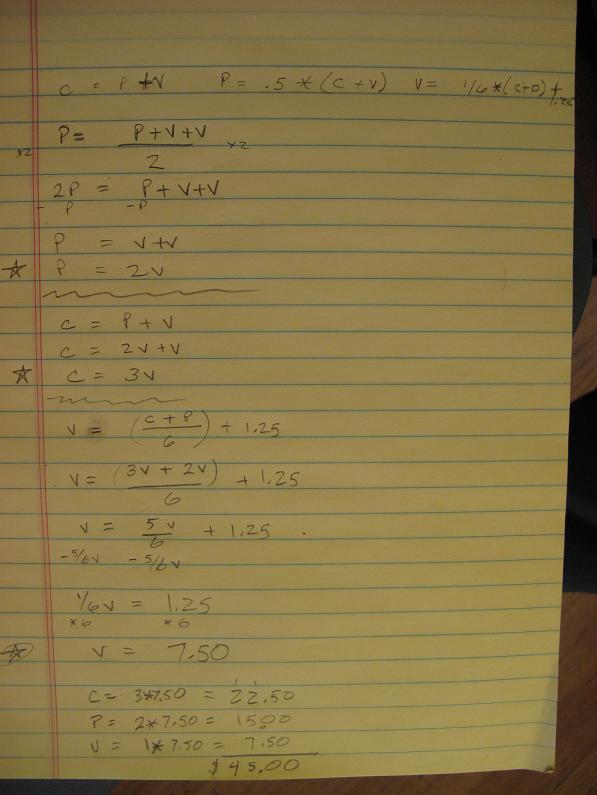 C = P + V P = .5 * (C + V) V = 1/6 * (C+P) + 1.25
P = P + V + V / 2
x2 x2
2P = P + V + V
- P - P
P = V + V
☆ P = 2V
C = P + V
C = 2V + V
☆ C = 3V
V = (C + P / 6) + 1.25
V = (3V + 2V / 6) + 1.25
V = 5V / 6 + 1.25
-5/6V -5/6V
1/6V = 1.25
*6 *6
☆ V = 7.50
C = 3*7.50 = 22.50
P = 2*7.50 = 15.00
V = 1*7.50 = 7.50
$45.00